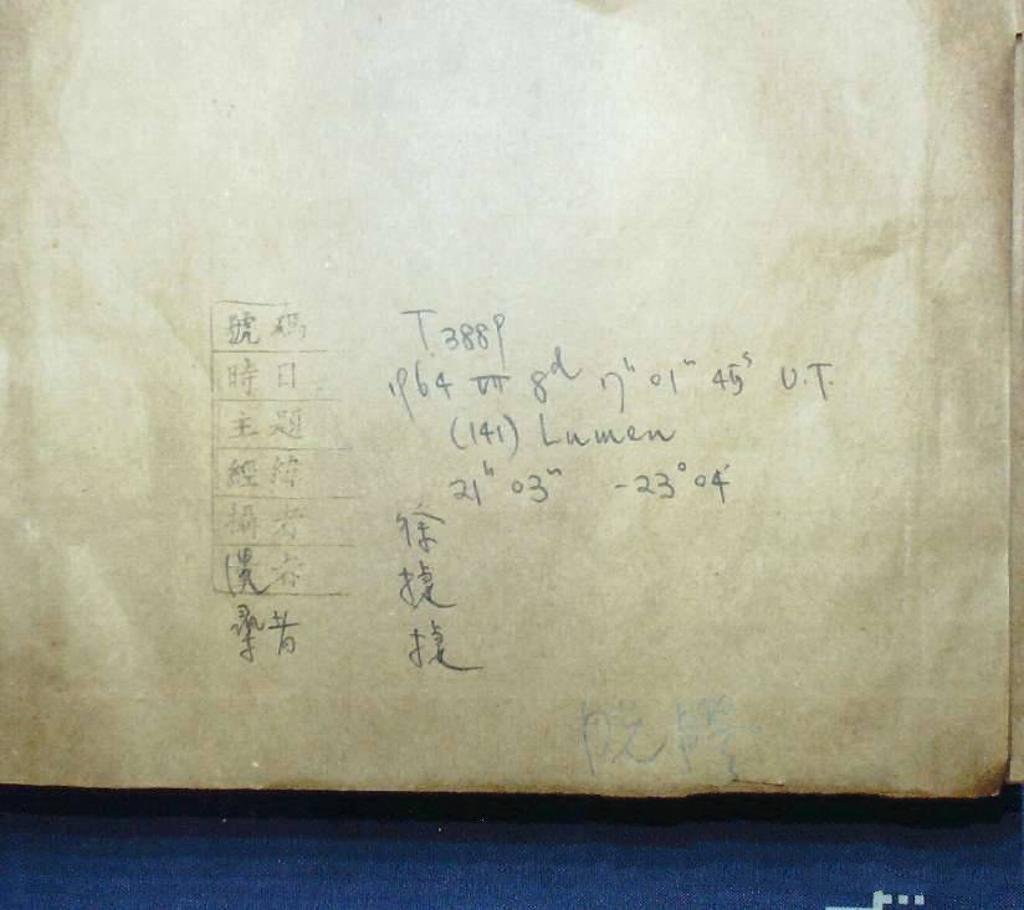 號碼 T.3889
時日 1964 VII 8ᵈ 17ʰ 01ᵐ 45ˢ U.T.
主題 (141) Lumen
經緯 21ʰ 03ᵐ -23° 04'
攝者 徐
者
者